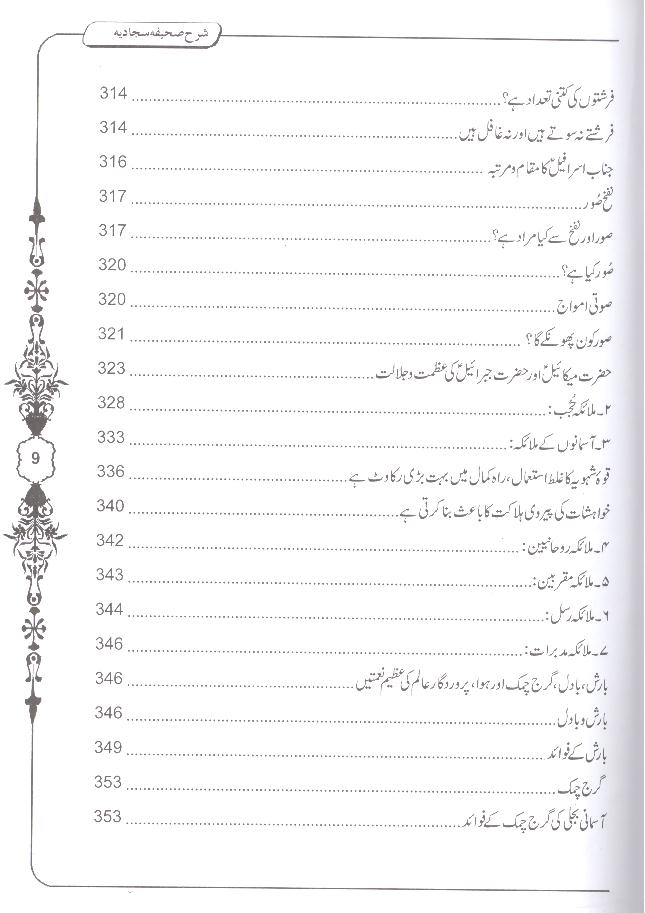 شرح صحیفہ سجادیہ
فرشتوں کی کتنی تعداد ہے؟ 314
فرشتے نہ سوتے ہیں اور نہ غافل ہیں 314
جناب اسرافیلؑ کا مقام و مرتبہ 316
نفخ صُور 317
صور اور نفخ سے کیا مراد ہے؟ 317
صُور کیا ہے؟ 320
صوتی امواج 320
صور کون پھونکے گا؟ 321
حضرت میکائیلؑ اور حضرت جبرائیلؑ کی عظمت و جلالت 323
۲۔ ملائکہ حُجب: 328
۳۔ آسمانوں کے ملائکہ: 333
قوۂ شہویہ کا غلط استعمال، راہ کمال میں بہت بڑی رکاوٹ ہے 336
خواہشات کی پیروی ہلاکت کا باعث بنا کرتی ہے 340
۴۔ ملائکہ روحانیین: 342
۵۔ ملائکہ مقربین: 343
۶۔ ملائکہ رسل: 344
۷۔ ملائکہ مدبرات: 346
بارش، بادل، گرج چمک اور ہوا، پروردگار عالم کی عظیم نعمتیں 346
بارش و بادل 346
بارش کے فوائد 349
گرج چمک 353
آسمانی بجلی کی گرج چمک کے فوائد 353
9